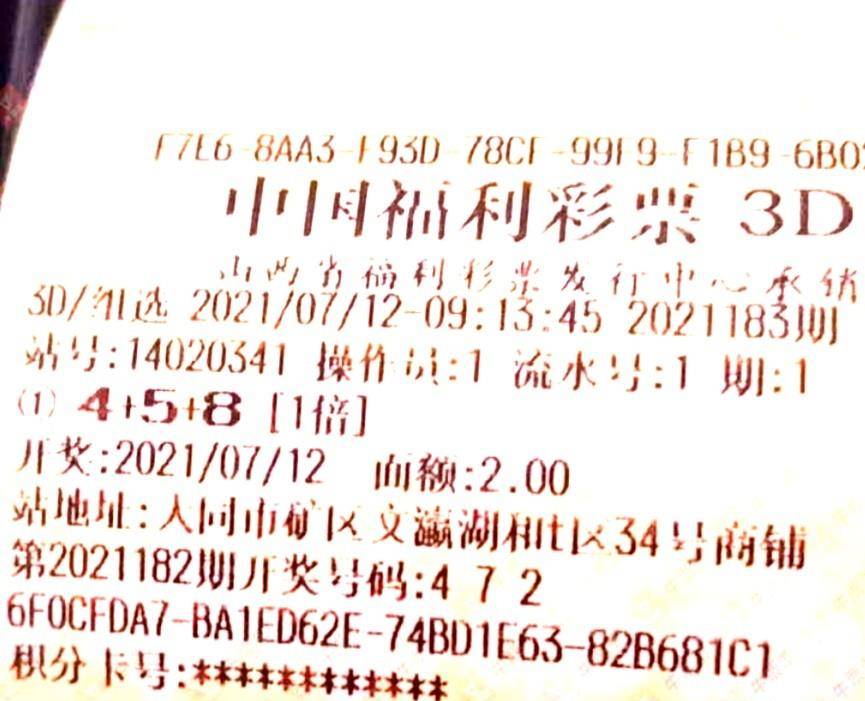 F7E6-8AA3-F93D-78CF-99F9-F1B9-6B0
中国福利彩票 3D
山西省福利彩票发行中心承销
3D/组选 2021/07/12-09:13:45 2021183期
站号:14020341 操作员:1 流水号:1 期:1
(1) 4+5+8 [1倍]
开奖:2021/07/12 面额:2.00
站地址:大同市矿区文瀛湖社区34号商铺
第2021182期开奖号码:4 7 2
6F0CFDA7-BA1ED62E-74BD1E63-82B681C1
积分卡号:************